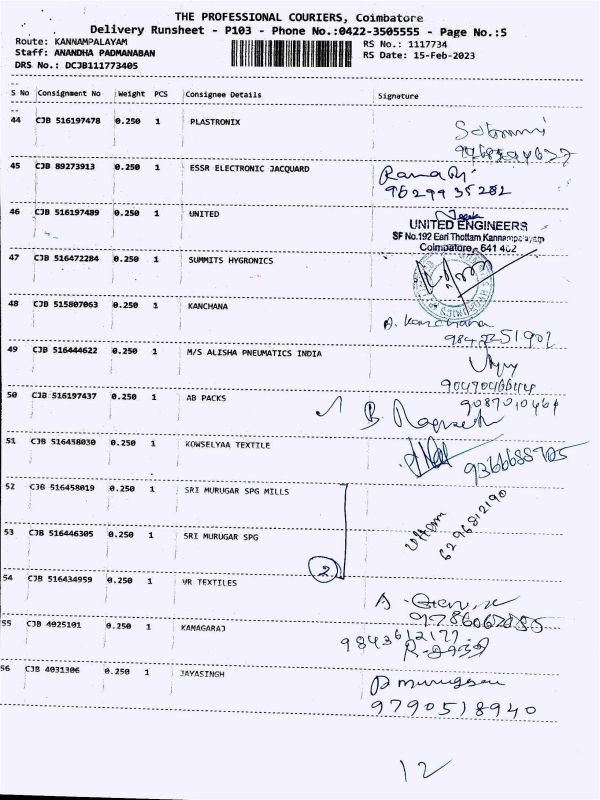 THE PROFESSIONAL COURIERS, Coimbatore
Delivery Runsheet - P103 - Phone No.:0422-3505555 - Page No.:5
Route: KANNAMPALAYAM
RS No.: 1117734
Staff: ANANDHA PADMANABAN
RS Date: 15-Feb-2023
DRS No.: DCJB111773405
S No Consignment No Weight PCS Consignee Details Signature
44 CJB 516197478 0.250 1 PLASTRONIX
45 CJB 89273913 0.250 1 ESSR ELECTRONIC JACQUARD
9629935282
46 CJB 516197489 0.250 1 UNITED
UNITED ENGINEERS
SF No.192 Eari Thottam Kannampalayam
Coimbatore - 641 402
47 CJB 516472284 0.250 1 SUMMITS HYGRONICS
48 CJB 515807063 0.250 1 KANCHANA
49 CJB 516444622 0.250 1 M/S ALISHA PNEUMATICS INDIA
50 CJB 516197437 0.250 1 AB PACKS
9087010464
51 CJB 516458030 0.250 1 KOWSELYAA TEXTILE
52 CJB 516458019 0.250 1 SRI MURUGAR SPG MILLS
Uttam
6296812190
53 CJB 516446305 0.250 1 SRI MURUGAR SPG
2
54 CJB 516434959 0.250 1 VR TEXTILES
55 CJB 4025101 0.250 1 KAMAGARAJ
9843612177
56 CJB 4031306 0.250 1 JAYASINGH
P murugesan
9790518940
12